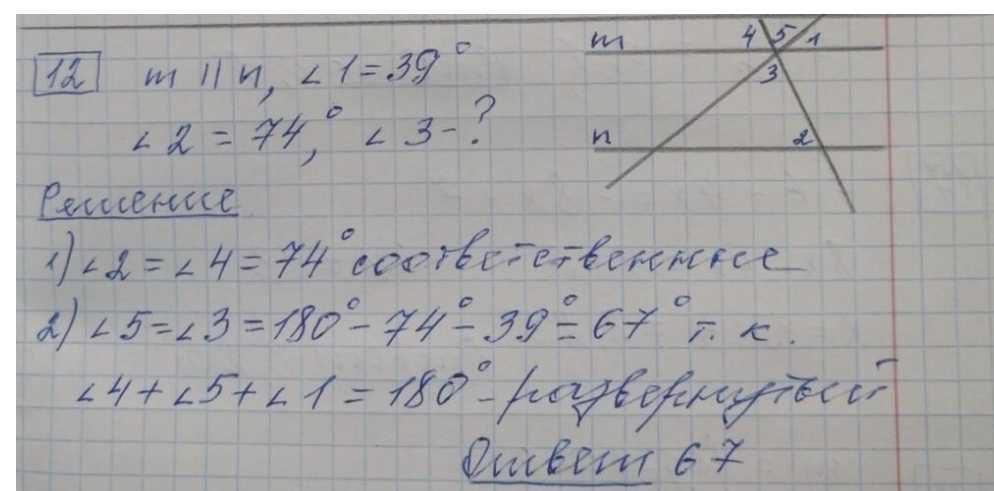 12 m || n, ∠1 = 39°
∠2 = 74°, ∠3 - ?
Решение
1) ∠2 = ∠4 = 74° соответственные
2) ∠5 = ∠3 = 180° - 74° - 39° = 67° т. к.
∠4 + ∠5 + ∠1 = 180° - развернутый
Ответ 67
m 4 5 1
3
n 2